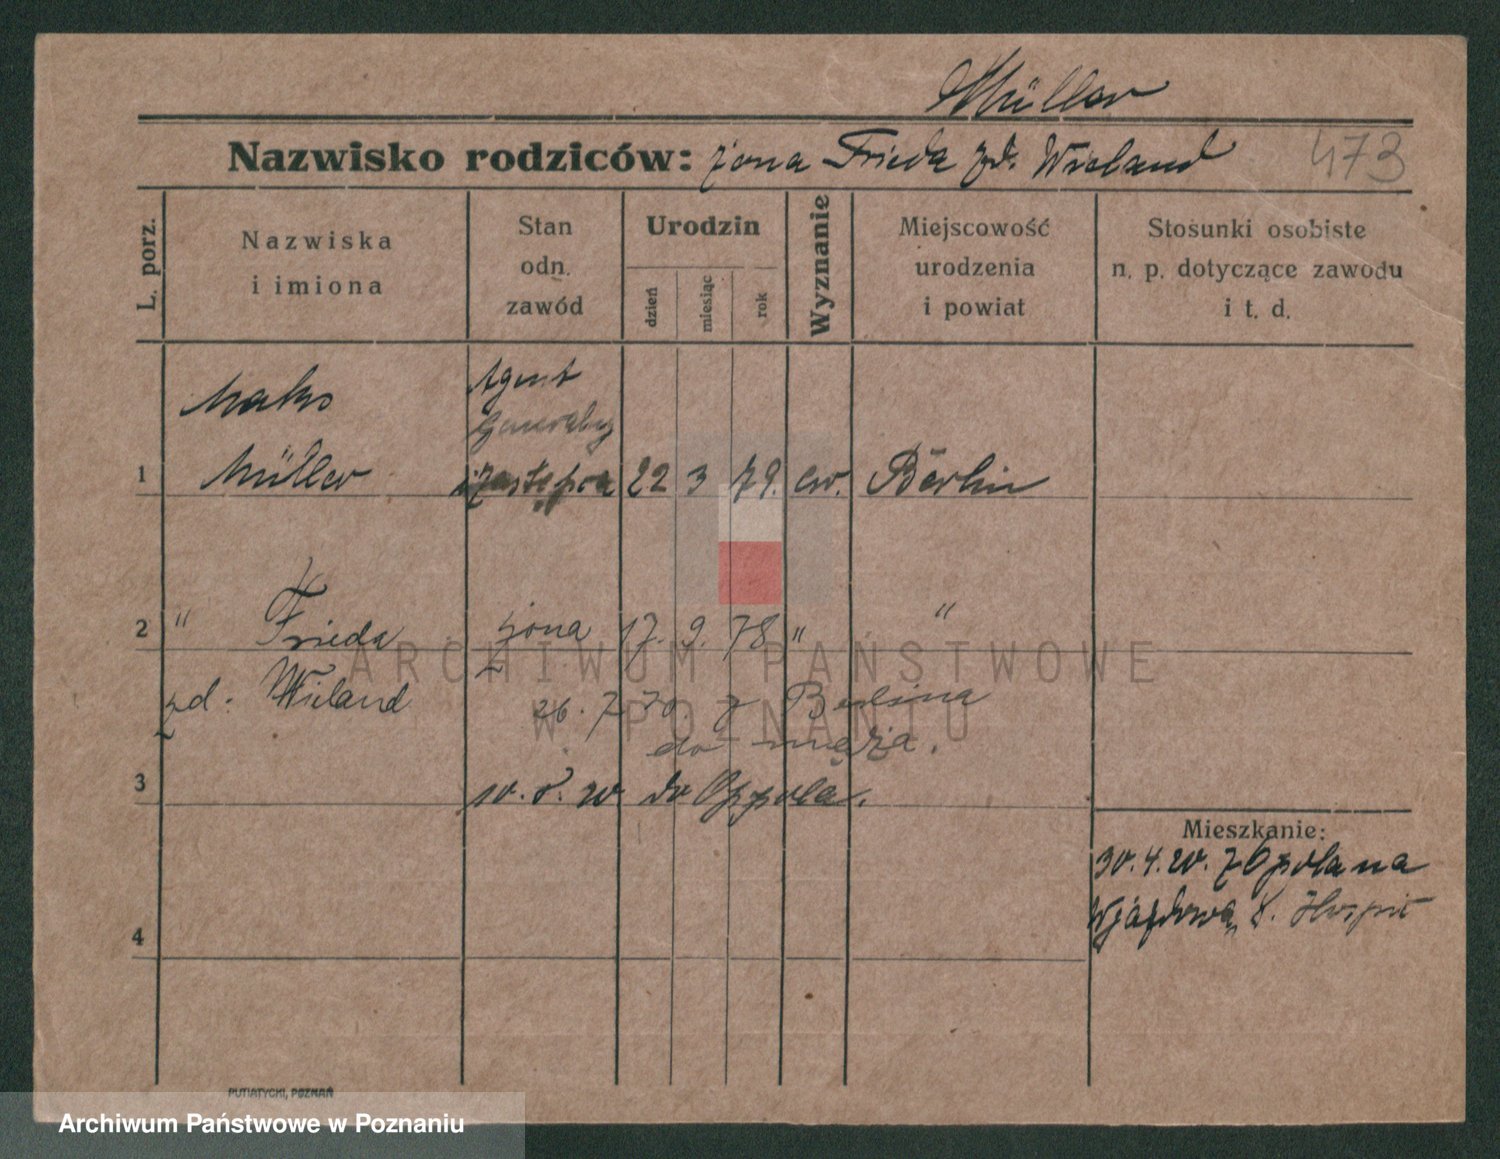 Müller
Nazwisko rodziców: żona Frieda zd. Wieland 473
L. porz.
Nazwiska i imiona
Stan odn. zawód
Urodzin
dzień
miesiąc
rok
Wyznanie
Miejscowość urodzenia i powiat
Stosunki osobiste n. p. dotyczące zawodu i t. d.
Maks Agent
Generalny
1 Müller zastępca 22 3 79. ew. Berlin
2 " Frieda żona 17. 9. 78 " "
zd. Wieland 26. 7 z Berlina
do męża.
3 10. 8. 20 do Oppola.
Mieszkanie:
30. 4. 20. z Opola na
Wjazdowa Hospic
4
PUTIATYCKI, POZNAŃ
ARCHIWUM PAŃSTWOWE
W POZNANIU
Archiwum Państwowe w Poznaniu